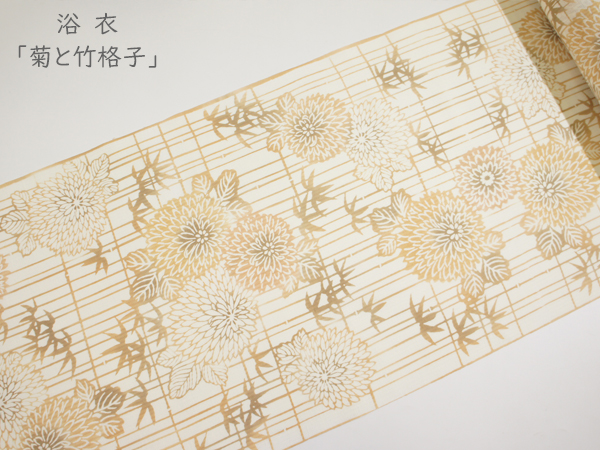 浴衣
「菊と竹格子」